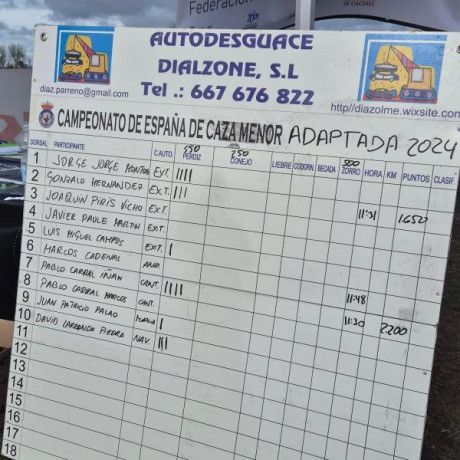 Federación
DE CÁCERES
AUTODESGUACE
DIALZONE, S.L
Tel .: 667 676 822
diaz.parreno@gmail.com
http//diazolme.wixsite.com
CAMPEONATO DE ESPAÑA DE CAZA MENOR ADAPTADA 2024
550 250 500
DORSAL PARTICIPANTE C.AUTO. PERDIZ CONEJO LIEBRE CODORN BECADA ZORRO HORA KM PUNTOS CLASIF
1 JORGE JORGE MONTON EXT. IIII
2 GONZALO HERNANDEZ EXT. III
3 JOAQUIN PIRIS VICHO EXT. 11:31 1.650
4 JAVIER PAULE MARTIN EXT.
5 LUIS MIGUEL CAMPOS EXT. I
6 MARCOS CADENAS AND.
7 PABLO CARRAL IÑAN CANT. IIII
8 PABLO CARRAL MARCOS CANT. 11:48
9 JUAN PATRICIO PALAO I 11:30 2.200
10 DAVID LARRONDO PIEDRA NAV. III
11
12
13
14
15
16
17
18